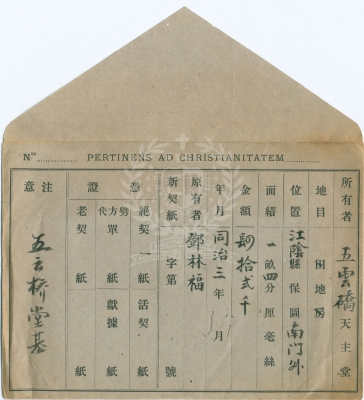 Nus PERTINENS AD CHRISTIANITATEM
所有者 五雲橋 天主堂
地目 囤地房
位置 江陰縣 保 圖 南门外
面績 一畝四分 厘毫絲
金額 肆拾弍千
年月 同治三年 月
原有者 鄧林福
新契紙 字第 號
憑證 絕契一紙 活契 紙
方單 紙 獻據 紙
老契 紙 紙
注意 五云桥堂基